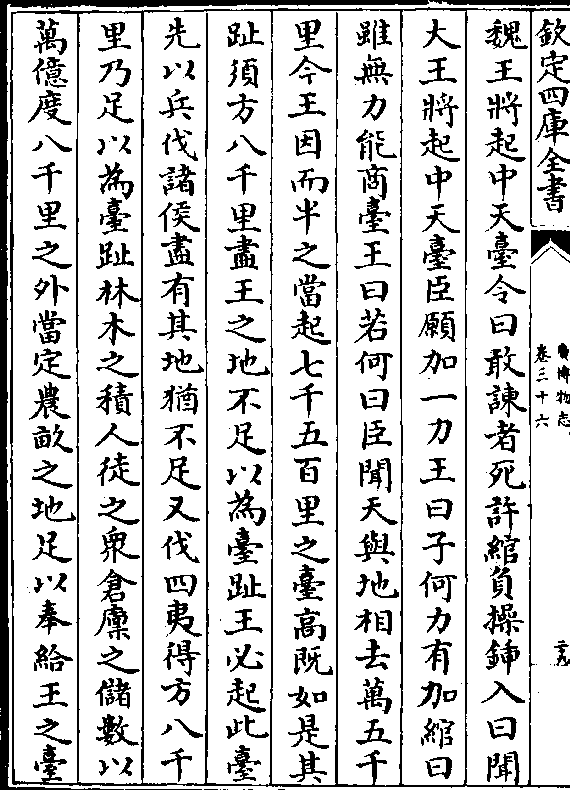 欽定四庫全書
廣博物志
卷三十六
魏王將起中天臺令曰敢諫者死許綰負操鍤入曰聞
大王將起中天臺臣願加一力王曰子何力有加綰曰
雖無力能商臺王曰若何曰臣聞天與地相去萬五千
里今王因而半之當起七千五百里之臺高既如是其
趾須方八千里盡王之地不足以為臺趾王必起此臺
先以兵伐諸侯盡有其地猶不足又伐四夷得方八千
里乃足以為臺趾林木之積人徒之衆倉廩之儲數以
萬億度八千里之外當定農畝之地足以奉給王之臺